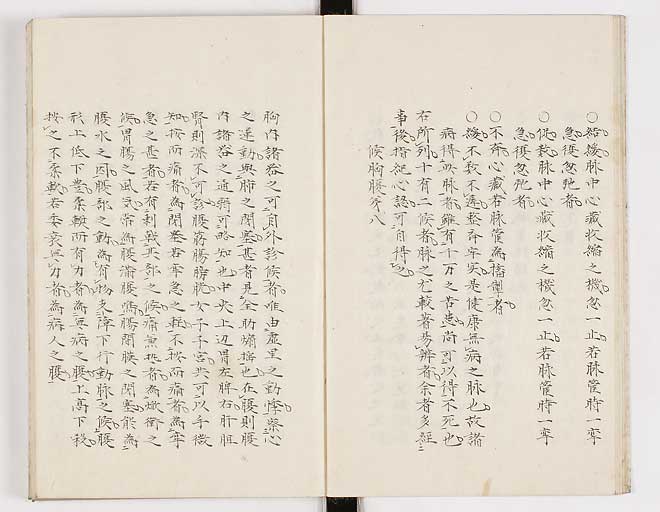 ○結緩脉中心藏收縮之機忽一止若脉管時一牽
急復忽弛者
○促数脉中心藏收縮之機忽一止若脉管時一牽
急復忽弛者
○不斉心藏若脉管為搐掣者
○緩不数不遅整斉牢実是健康無病之脉也故諸
病得此脉者雖有十万之苦患尚可以得不死也
右所列十有二候者脉之尤較著易辨者余者多經
事後指組心認可自得
候胸腹第八
胸内諸器之可自外診候者唯由虚里之動悸察心
之運動與肺之開塞甚者見全肋痛搐也在腹則腹
内諸器之通稱可略知也中央上辺胃左脾右肝胆
腎則深不可診腹前腸膀胱女子子宮共可以手微
知按所痛者為閉塞若牽急之軽不按所痛者為牽
急之甚者若有刺戟其部之候痛無抵者為焮衝之
候胃腸之風気常為腹満腹鳴腸閉腹之閉塞能為
腹水之因腹部之動為有物支障下行動脉之候腹
形上低下豊柔軟而有力者為無病之腹上高下殺
按之不柔軟若委衰無力者為病人之腹